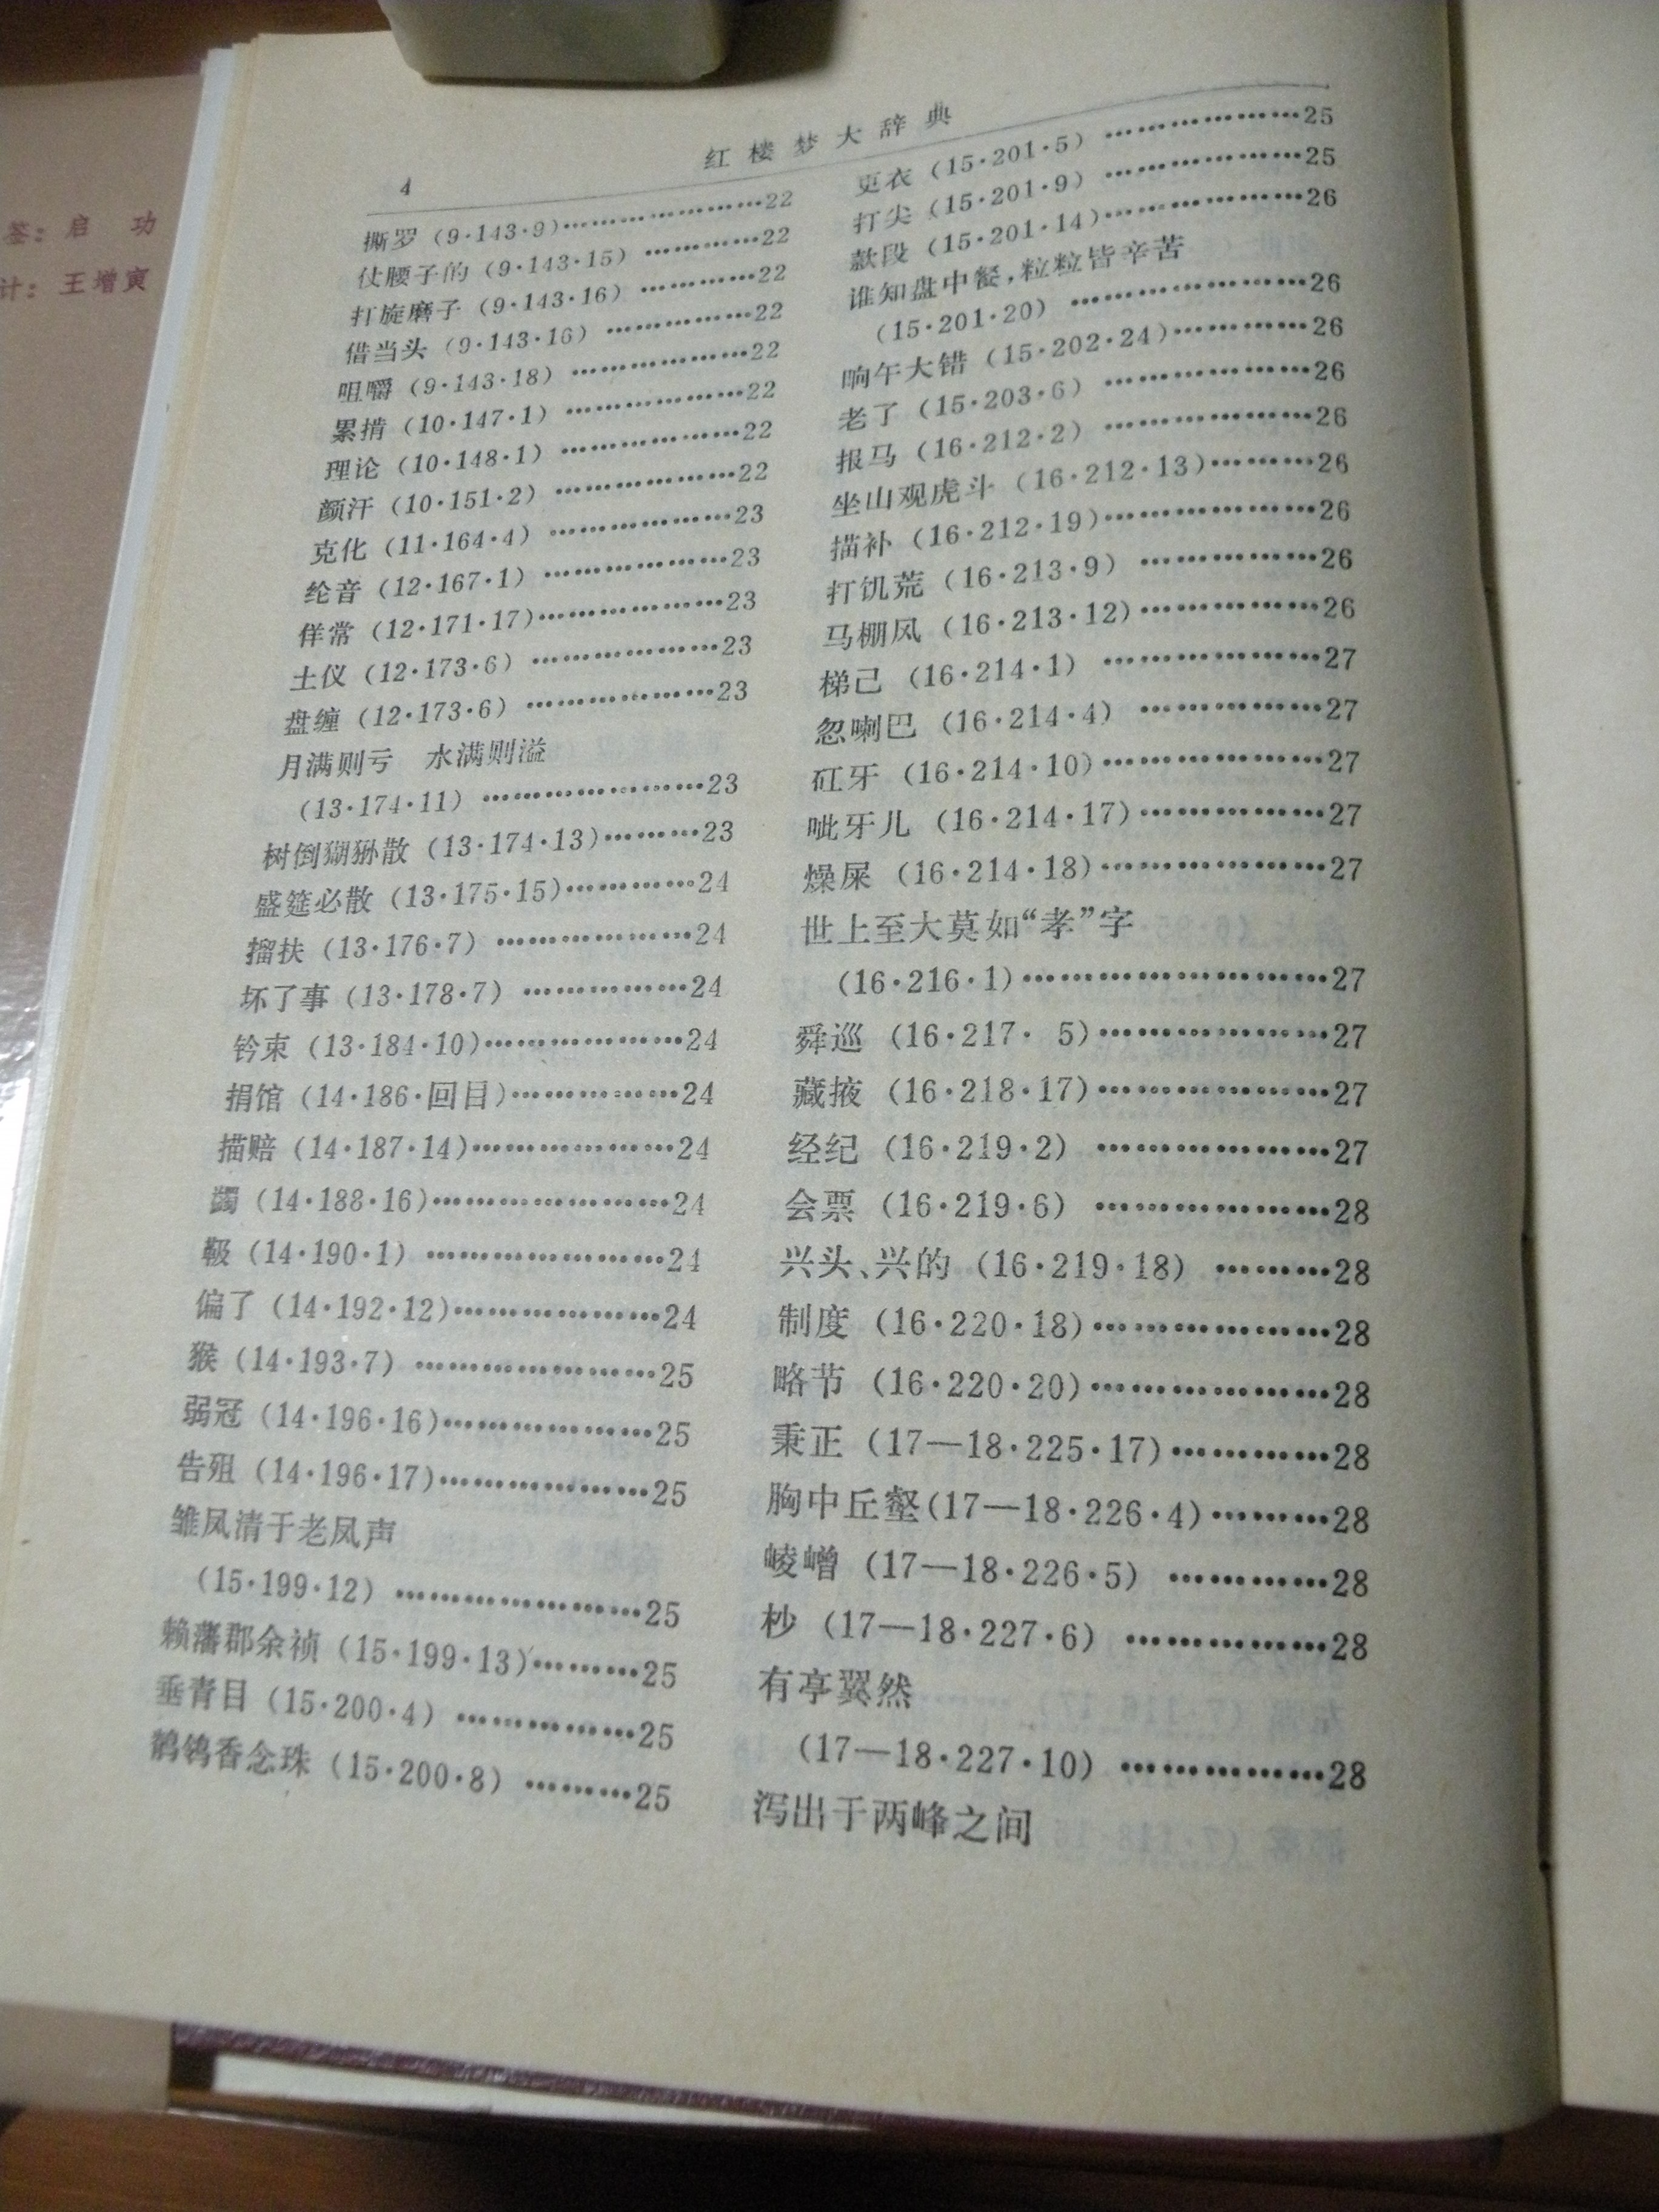 签：启　功
计：王增寅
4
红楼梦大辞典
撕罗（9·143·9）…………………22
仗腰子的（9·143·15）…………22
打旋磨子（9·143·16）…………22
借当头（9·143·16）……………22
咀嚼（9·143·18）………………22
累掯（10·147·1）………………22
理论（10·148·1）………………22
颜汗（10·151·2）………………22
克化（11·164·4）………………23
纶音（12·167·1）………………23
佯常（12·171·17）………………23
土仪（12·173·6）………………23
盘缠（12·173·6）………………23
月满则亏　水满则溢
（13·174·11）…………………23
树倒猢狲散（13·174·13）………23
盛筵必散（13·175·15）…………24
搊扶（13·176·7）………………24
坏了事（13·178·7）……………24
钤束（13·184·10）………………24
捐馆（14·186·回目）……………24
描赔（14·187·14）………………24
蠲（14·188·16）…………………24
靸（14·190·1）…………………24
偏了（14·192·12）………………24
猴（14·193·7）…………………25
弱冠（14·196·16）………………25
告殂（14·196·17）………………25
雏凤清于老凤声
（15·199·12）…………………25
赖藩郡余祯（15·199·13）………25
垂青目（15·200·4）……………25
鹡鸰香念珠（15·200·8）………25
更衣（15·201·5）………………25
打尖（15·201·9）………………25
款段（15·201·14）………………26
谁知盘中餐，粒粒皆辛苦
（15·201·20）…………………26
晌午大错（15·202·24）…………26
老了（15·203·6）………………26
报马（16·212·2）………………26
坐山观虎斗（16·212·13）………26
描补（16·212·19）………………26
打饥荒（16·213·9）……………26
马棚风（16·213·12）……………26
梯己（16·214·1）………………27
忽喇巴（16·214·4）……………27
矼牙（16·214·10）………………27
呲牙儿（16·214·17）……………27
燥屎（16·214·18）………………27
世上至大莫如“孝”字
（16·216·1）……………………27
舜巡（16·217· 5）………………27
藏掖（16·218·17）………………27
经纪（16·219·2）………………27
会票（16·219·6）………………28
兴头、兴的（16·219·18）………28
制度（16·220·18）………………28
略节（16·220·20）………………28
秉正（17—18·225·17）…………28
胸中丘壑（17—18·226·4）………28
崚嶒（17—18·226·5）…………28
杪（17—18·227·6）……………28
有亭翼然
（17—18·227·10）……………28
泻出于两峰之间